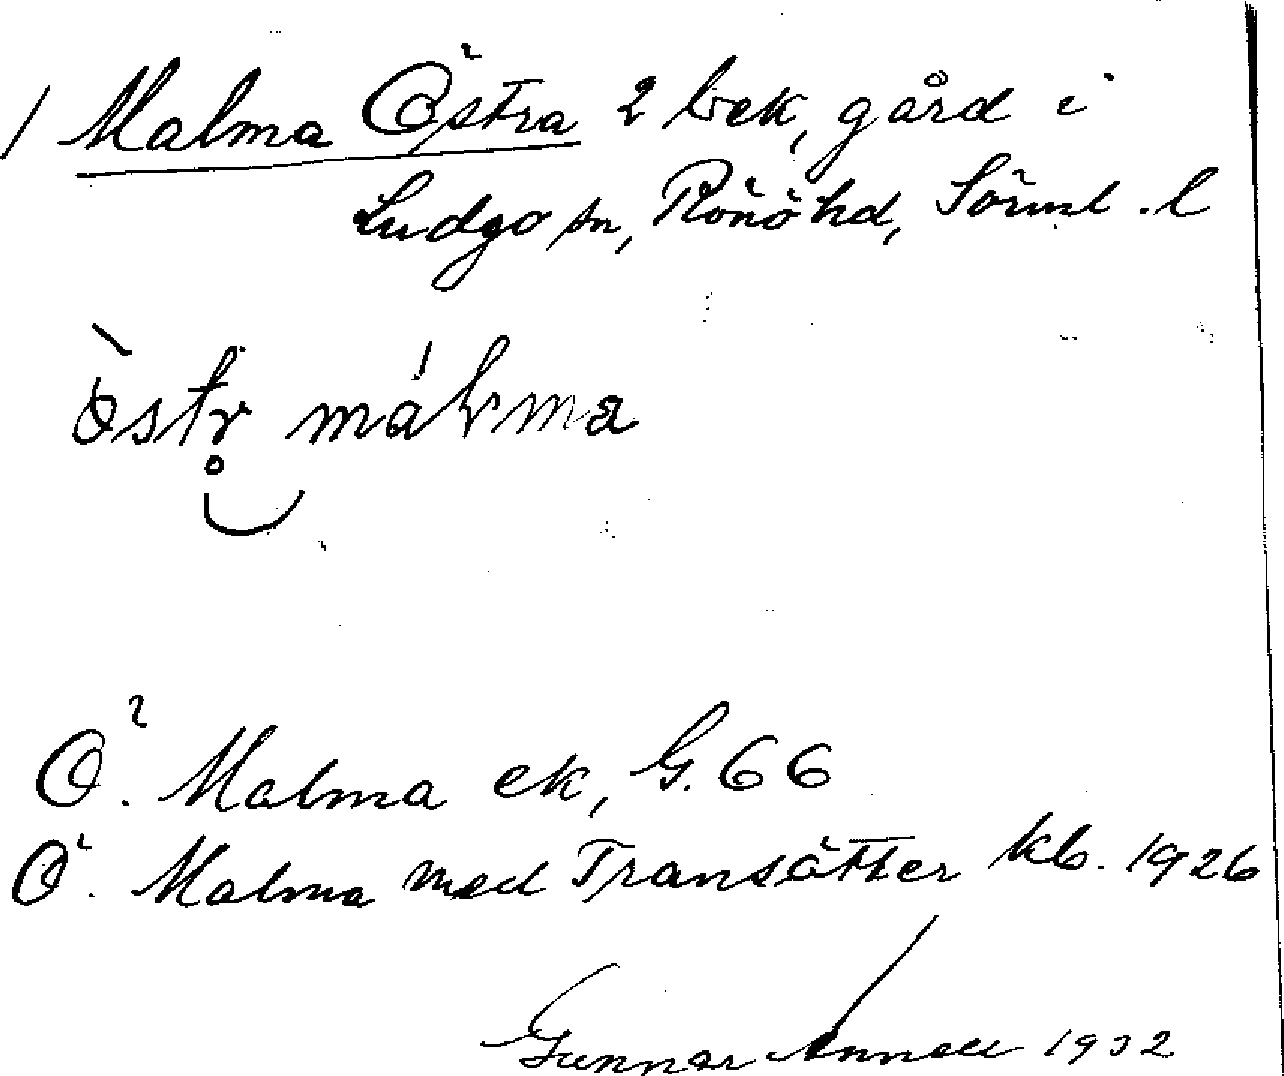 / Malma Östra 2 bek, gård i
Ludgo sn, Rönö hd, Sörml. l
östr málma
Ö. Malma ek, G. 66
Ö. Malma med Transätter kb. 1926
Gunnar 1932